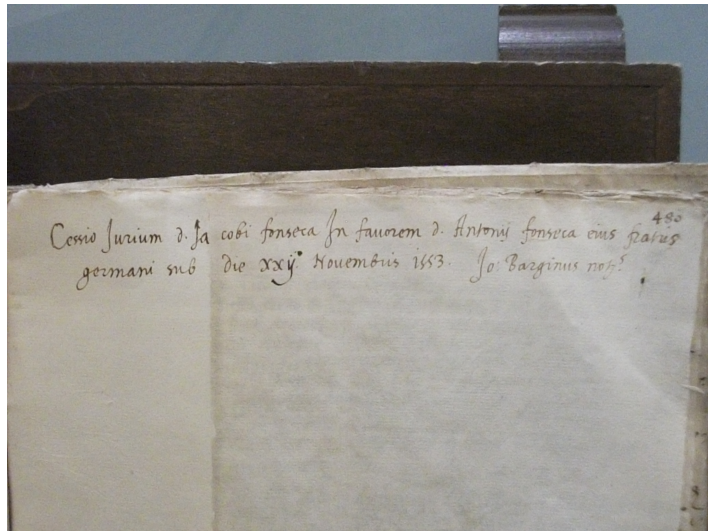 480
Cessio Jurium d. Ja cobi fonseca In fauorem d. Antonij fonseca eius fratris
germani sub die xxij Nouembris 1553. Jo: Barginus notꝰ